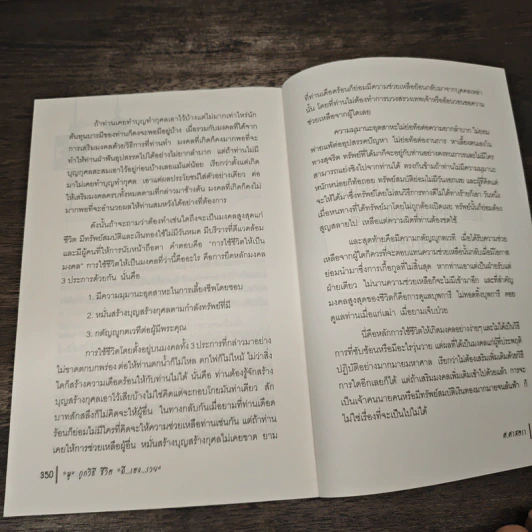 ถ้าท่านเคยทำบุญทำกุศลเอาไว้บ้างแต่ไม่มากเท่าไหร่นัก
ต้นทุนบารมีของท่านก็คงจะพอมีอยู่บ้าง เมื่อรวมกับมงคลที่ได้จาก
การเสริมมงคลด้วยวิธีการที่ท่านทำ มงคลที่เกิดก็คงมีมากพอที่จะ
ทำให้ท่านฝ่าฟันอุปสรรคไปได้อย่างไม่ยากลำบาก แต่ถ้าท่านไม่มี
บุญกุศลสะสมเอาไว้อยู่ก่อนบ้างเลยแม้แต่น้อย เรียกว่าตั้งแต่เกิด
มาไม่เคยทำบุญทำกุศล เอาแต่ผลประโยชน์ใส่ตัวอย่างเดียว ต่อ
ให้เสริมมงคลครบทั้งหมดตามที่กล่าวมาข้างต้น มงคลที่เกิดก็คงไม่มี
มากพอที่จะอำนวยผลให้ท่านสมหวังได้อย่างที่ต้องการ
ดังนั้นถ้าจะถามว่าต้องทำเช่นใดถึงจะเป็นมงคลสูงสุดแก่
ชีวิต มีทรัพย์สมบัติและเงินทองใช้ไม่มีวันหมด มีบริวารที่ดีแวดล้อม
และมีผู้คนที่ให้การนับหน้าถือตา คำตอบคือ "การใช้ชีวิตให้เป็น
มงคล" การใช้ชีวิตให้เป็นมงคลที่ว่านี้คืออะไร คือการยึดหลักมงคล
3 ประการด้วยกัน นั่นคือ
1. มีความมุมานะอุตสาหะในการเลี้ยงชีพโดยชอบ
2. หมั่นสร้างบุญสร้างกุศลตามกำลังทรัพย์ที่มี
3. กตัญญูกตเวทีต่อผู้มีพระคุณ
การใช้ชีวิตโดยตั้งอยู่บนมงคลทั้ง 3 ประการที่กล่าวมาอย่าง
ไม่ขาดตกบกพร่อง ต่อให้ท่านตกน้ำก็ไม่ไหล ตกไฟก็ไม่ไหม้ ไม่ว่าสิ่ง
ใดก็สร้างความเดือดร้อนให้กับท่านไม่ได้ นั่นคือ ท่านต้องรู้จักสร้าง
บุญสร้างกุศลเอาไว้เสียบ้างไม่ใช่คิดแต่จะกอบโกยเงินท่าเดียว สัก
บาทสักสลึงก็ไม่คิดจะให้ผู้อื่น ในทางกลับกันเมื่อยามที่ท่านเดือด
ร้อนก็ย่อมไม่มีใครที่คิดจะให้ความช่วยเหลือท่านเช่นกัน แต่ถ้าท่าน
เคยให้การช่วยเหลือผู้อื่น หมั่นสร้างบุญสร้างกุศลไม่เคยขาด ยาม
350
ที่ท่านเดือดร้อนก็ย่อมมีความช่วยเหลือย้อนกลับมาจากบุคคลเหล่า
นั้น โดยที่ท่านไม่ต้องทำการบวงสรวงเทพเจ้าหรืออ้อนวอนขอความ
ช่วยเหลือจากผู้ใดเลย
ความมุมานะอุตสาหะไม่ย่อท้อต่อความยากลำบาก ไม่ยอม
พ่ายแพ้ต่ออุปสรรคปัญหา ไม่ย่อท้อต่องานการ หาเลี้ยงตนเองใน
ทางสุจริต ทรัพย์ที่ได้มาก็จะอยู่กับท่านอย่างคงทนถาวรและไม่มีใคร
สามารถแย่งชิงไปจากท่านได้ ตรงกันข้ามถ้าท่านไม่มีความมุมานะ
หนักหน่อยก็ท้อถอย ทรัพย์สมบัติย่อมไม่มีวันงอกเงย และผู้ที่คิดแต่
จะให้ได้มาซึ่งทรัพย์โดยไม่สนวิธีการทางดีไม่ได้ทางร้ายก็เอา วันหนึ่ง
เมื่อหนทางที่ได้ทรัพย์มาโดยไม่ถูกต้องเปิดเผย ทรัพย์นั้นก็ย่อมต้อง
สูญสลายไป เหลือแต่ความผิดที่ท่านต้องชดใช้
และสุดท้ายคือมีความกตัญญูกตเวที เมื่อได้รับความช่วย
เหลือจากผู้ใดก็ควรที่จะตอบแทนความช่วยเหลือนั้นกลับไปเมื่อมีโอกาส
ย่อมนำมาซึ่งการเกื้อกูลที่ไม่สิ้นสุด หากท่านเอาแต่เป็นฝ่ายรับแต่
ฝ่ายเดียว ไม่นานความช่วยเหลือก็จะไม่มีเข้ามาอีก และที่สำคัญ
มงคลสูงสุดของชีวิตก็คือการดูแลบุพการี ไม่ทอดทิ้งบุพการี คอย
ดูแลท่านเมื่อแก่เฒ่า เมื่อยามเจ็บป่วย
นี่คือหลักการใช้ชีวิตให้เกิดมงคลอย่างง่ายๆ และไม่ได้มีวิธี
การที่ซับซ้อนหรือมีอะไรวุ่นวาย แต่ผลที่ได้เป็นมงคลแก่ผู้ที่ประพฤติ
ปฏิบัติอย่างมากมายมหาศาล เรียกว่าไม่ต้องเสริมเพิ่มเติมด้วยวิธี
การใดอีกเลยก็ได้ แต่ถ้าเสริมมงคลเพิ่มเติมเข้าไปด้วยแล้ว การจะ
เป็นเจ้าคนนายคนหรือมีทรัพย์สมบัติเงินทองมากมายจนล้นฟ้า ก็
ไม่ใช่เรื่องที่จะเป็นไปไม่ได้